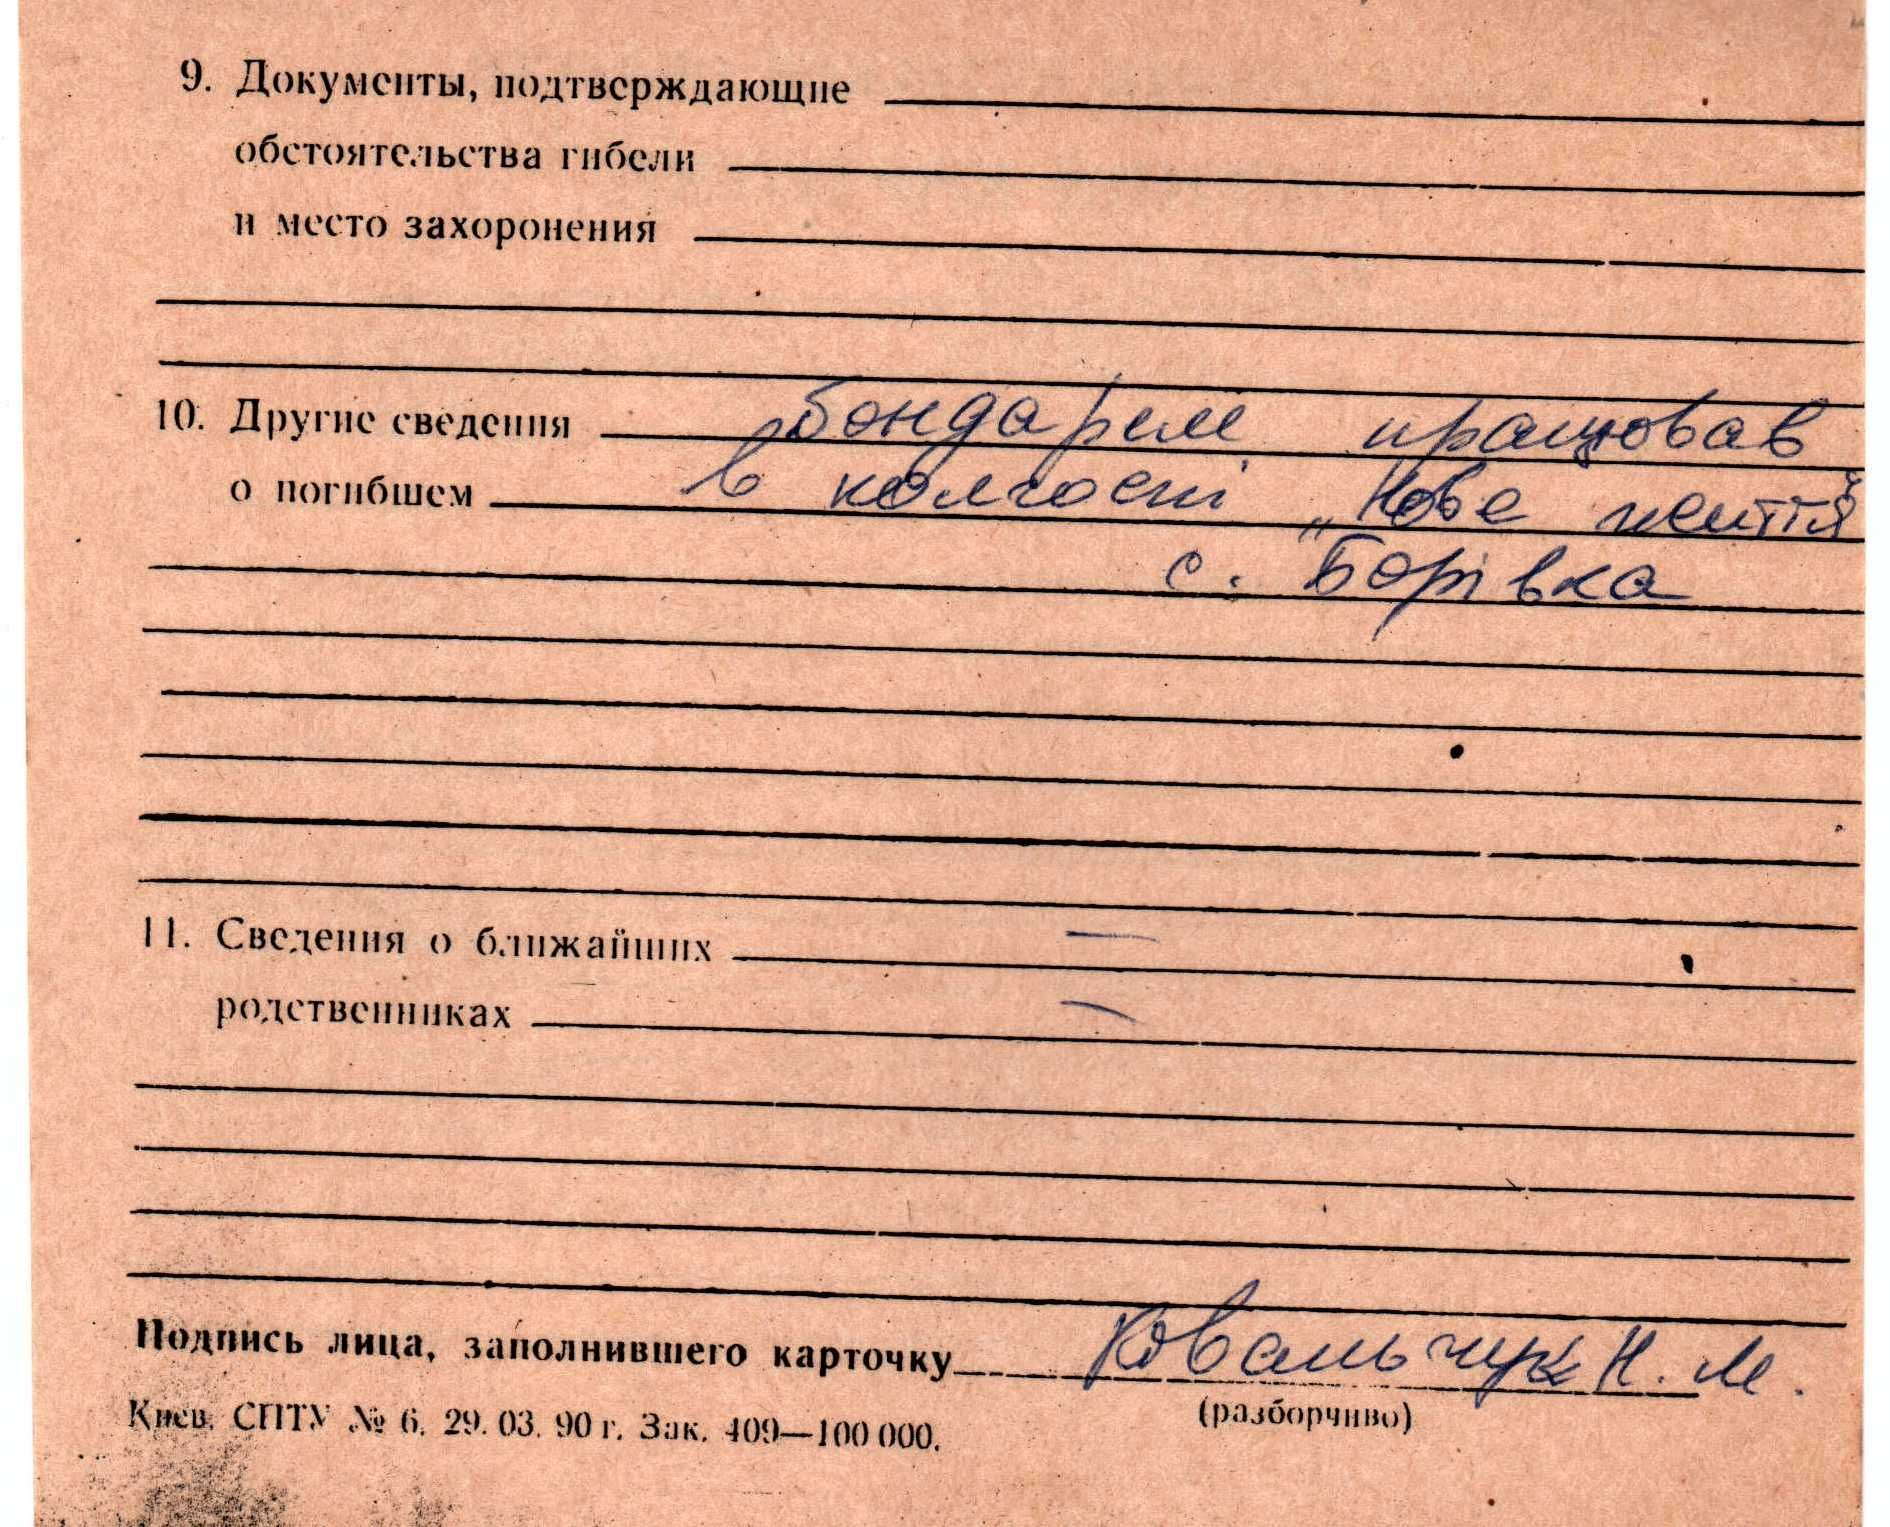 9. Документы, подтверждающие
обстоятельства гибели
и место захоронения
10. Другие сведения бондарем працював
о погибшем в колгоспі „Нове життя"
с. Борівка
11. Сведения о ближайших —
родственниках —
Подпись лица, заполнившего карточку Ковальчук Н. М.
(разборчиво)
Киев. СПТУ № 6. 29. 03. 90 г. Зак. 409—100 000.